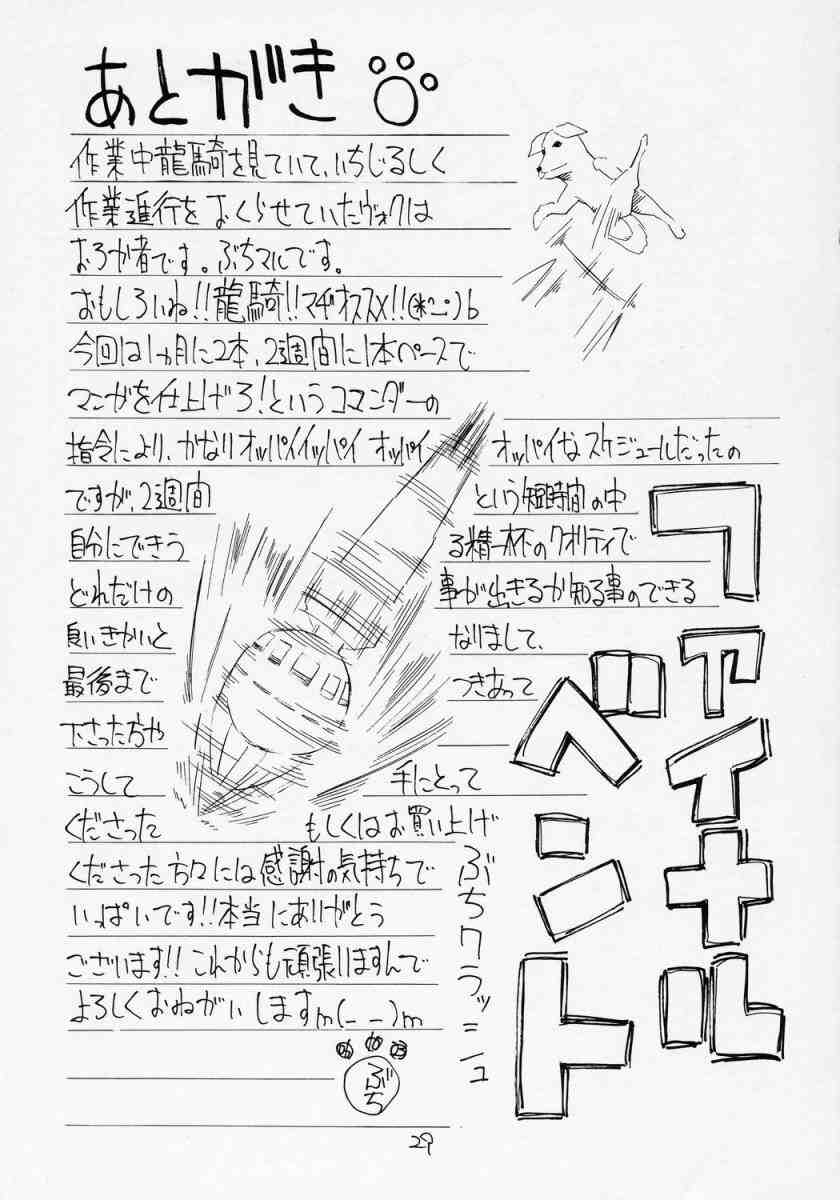 あとがき
作業中龍騎を見ていて、いちじるしく
作業進行をおくらせていたヴォクは
おろか者です。ぶちマルです。
おもしろいね!!龍騎!!マヂオススメ!!(*^_^)b
今回は1ヵ月に2本、2週間に1本ペースで
マンガを仕上げろ!というコマンダーの
指令により、かなりオッパイイッパイ オッパイ オッパイなスケジュールだったの
ですが、2週間 という短時間の中
自分にできう る精一杯のクオリティで
どれだけの 事が出きるか知る事のできる
良いきかいと なりまして、
最後まで つきあって
下さった方や
こうして 手にとって
くださった もしくはお買い上げ
くださった方々には感謝の気持ちで
いっぱいです!!本当にありがとう
ございます!!これからも頑張りますんで
よろしくおねがいしますm(_ _)m
ぶち
ぶちクラッシュ
ファイナル
ベント
29